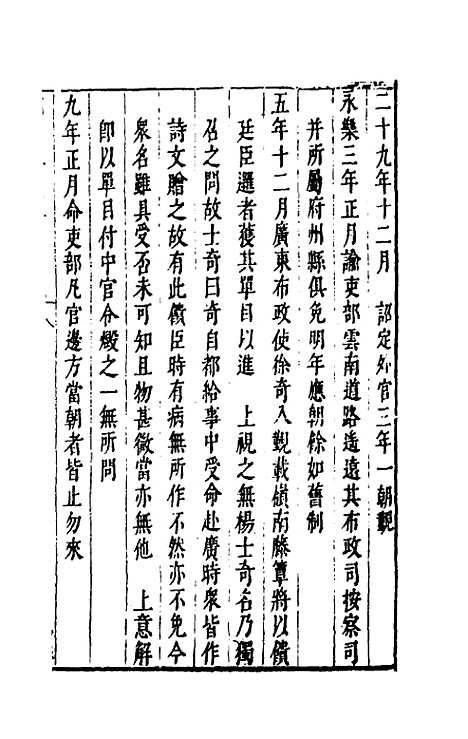 二十九年十二月　詔定外官三年一朝覲
永樂三年正月諭吏部雲南道路遙遠其布政司按察司
并所屬府州縣俱免明年應朝餘如舊制
五年十二月廣東布政使徐奇入覲載嶺南藤簟將以饋
廷臣邏者獲其單目以進　上視之無楊士奇名乃獨
召之問故士奇曰奇自都給事中受命赴廣時衆皆作
詩文贈之故有此饋臣時有病無所作不然亦不免今
衆名雖具受否未可知且物甚微當亦無他　上意解
即以單目付中官令燬之一無所問
九年正月命吏部凡官邊方當朝者皆止勿來